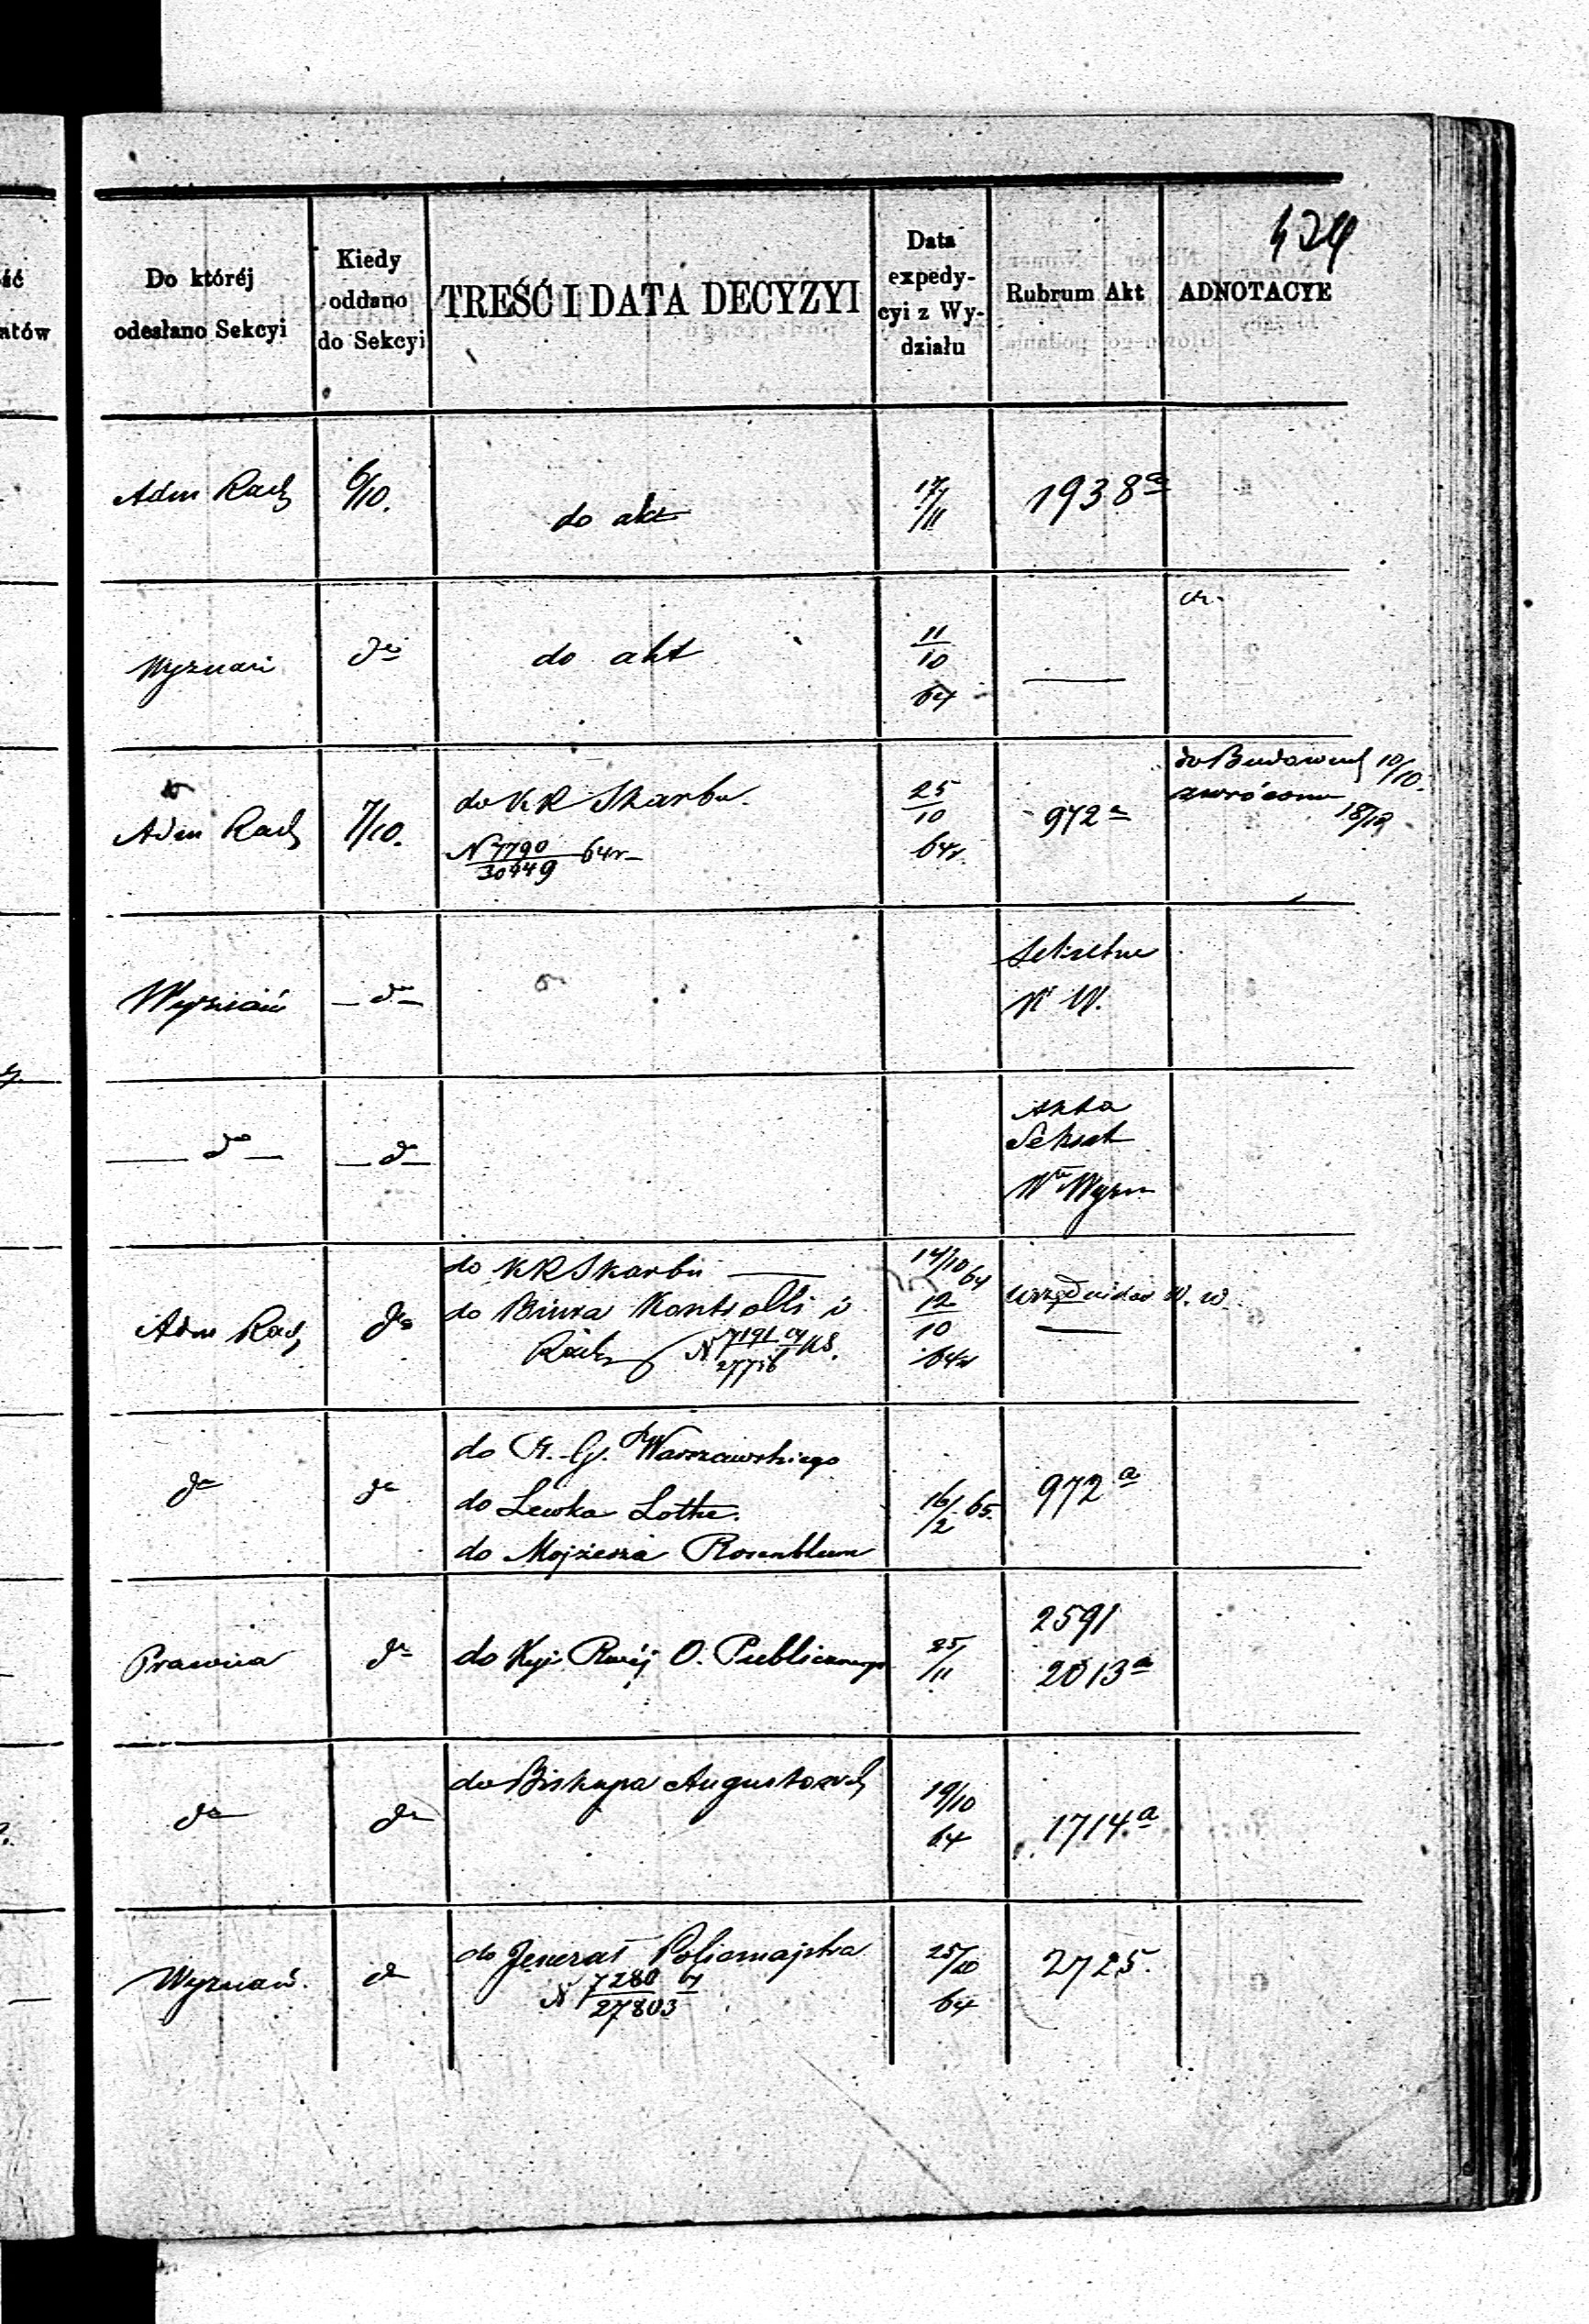 Do któréj
odesłano Sekcyi
Kiedy
oddano
do Sekcyi
TREŚĆ I DATA DECYZYI
Data
expedy-
cyi z Wy-
działu
Rubrum Akt
ADNOTACYE
Adm Rach
6/10.
do akt
17/11
1938 a
Wyznań
do
do akt
11/10
64
Adm Rach
7/10.
do KR Skarbu.
N 7790/30449 64r
25/10
64r
972 a
do Budown 10/10.
zwrócono
18/10
Wyznań
do
Sekretne
W W.
do
do
Akta
Sekret
W Wyzn
Adm Rach
do
do KR Skarbu
do Biura Kontrolli i
Rach
14/10 64
12/10
64r
urzędników W. W.
do
do
do G. Warszawskiego
do Lewka Lothe.
do Mojżesza Rosenblum
16/2 65.
972 a
Prawna
do
do Kyi Rząj O. Publicznego
25/11
2591
2013 a
do
do
do Biskupa Augustowsk
19/10
64
1714 a
Wyznań.
do
do Jenerał Policmajstra
N 7280/27803 64
25/10
64
2725.